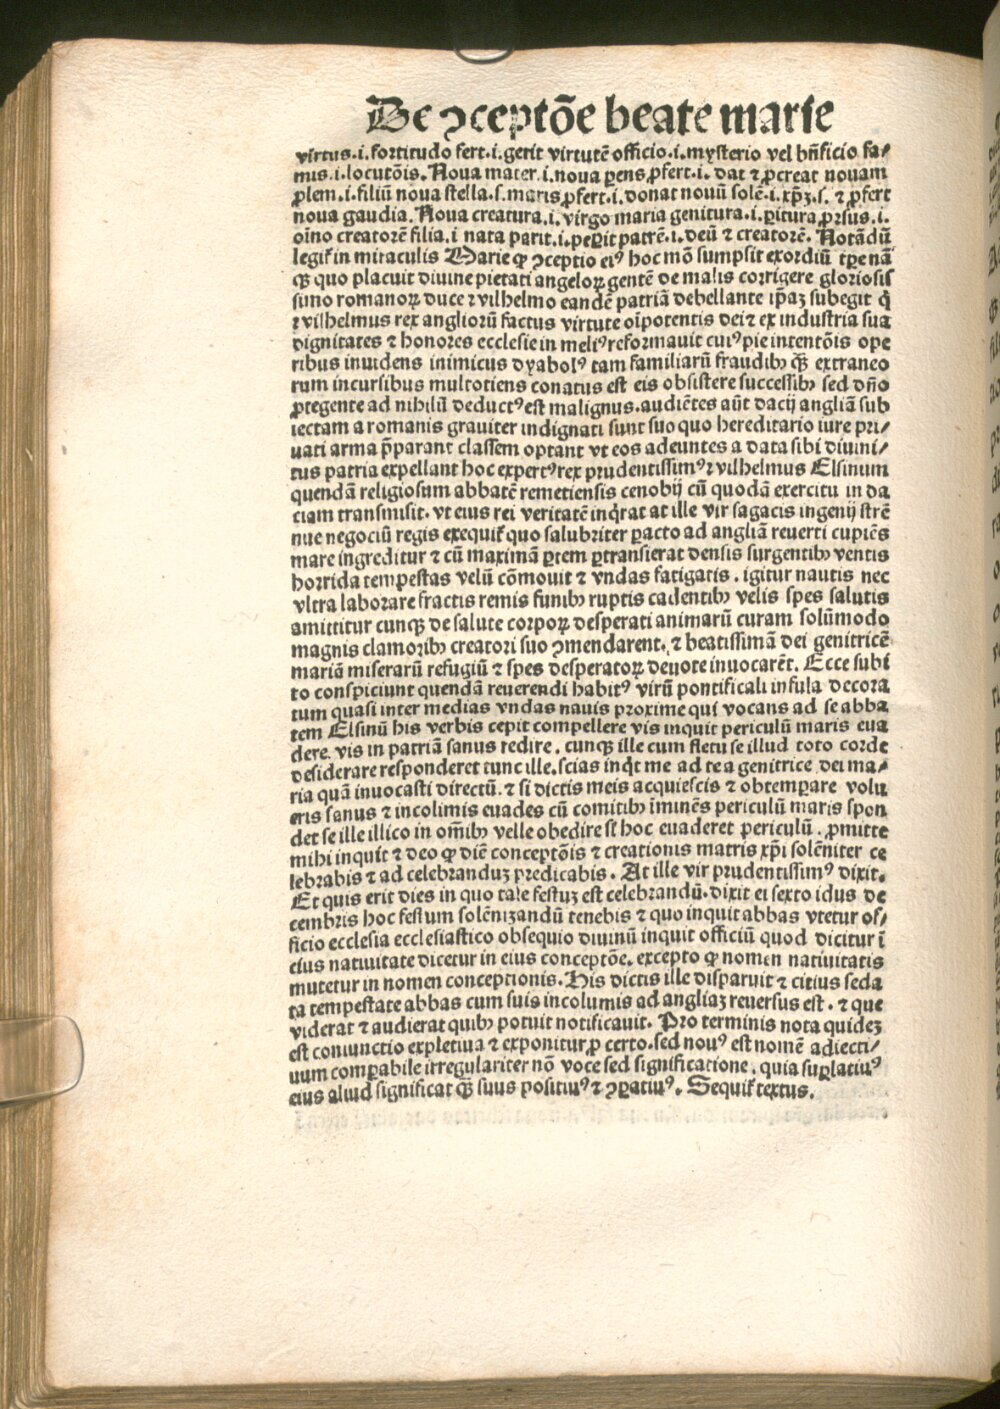 De ↄceptōe beate marie
virtus.i.fortitudo fert.i.gerit virtutē officio.i.mysterio vel bn̄ficio fa⸗
mis.i.locutōis. Noua mater.i.noua ꝑens ꝓfert.i.dat ⁊ ꝓcreat nouam
ꝓlem.i.filiū noua stella.s.maris ꝓfert.i.donat nouū solē.i.xp̄ꝫ.s. ⁊ ꝓfert
noua gaudia. Noua creatura.i.virgo maria genitura.i.ꝑitura ꝓrsus.i.
oīno creatorē filia.i nata parit.i.peꝑit patrē.i.deū ⁊ creatorē. Notādū
legit᷑ in miraculis Marie ꝙ ↄceptio eiꝰ hoc mō sumpsit exordiū tꝑe nā
qꝫ quo placuit diuine pietati angeloꝝ gentē de malis corrigere gloriosis
simo romanoꝝ duce ꝛvilhelmo eandē patriā debellante ip̄aꝫ subegit q̇
ꝛvilhelmus rex angliorū factus virtute oīpotentis dei ⁊ ex industria sua
dignitates ⁊ honores ecclesie in meliꝰ reformauit cuiꝰ pie intentōis ope
ribus inuidens inimicus dyabolꝰ tam familiarū fraudibꝫ qꝫ̄ extraneo
rum incursibus multotiens conatus est eis obsistere successibꝫ sed dn̄o
ꝓtegente ad nihilū deductꝰ est malignus.audiētes aūt dacij angliā sub
iectam a romanis grauiter indignati sunt suo quo hereditario iure pri⸗
uati arma p̄parant classem optant vt eos adeuntes a data sibi diuini⸗
tus patria expellant hoc expertꝰ rex prudentissimꝰ ꝛvilhelmus Elsinum
quendā religiosum abbatē remetiensis cenobij cū quodā exercitu in da
ciam transmisit. vt eius rei veritatē inq̇rat at ille vir sagacis ingenij strē
nue negociū regis exequit᷑ quo salubriter ꝑacto ad angliā reuerti cupiēs
mare ingreditur ⁊ cū maximā ꝑtem ꝑtransierat densis surgentibꝫ ventis
horrida tempestas velū cōmouit ⁊ vndas fatigatis . igitur nautis nec
vltra laborare fractis remis funibꝫ ruptis cadentibꝫ velis spes salutis
amittitur cunqꝫ de salute corpoꝝ desperati animarū curam solūmodo
magnis clamoribꝫ creatori suo ↄmendarent. ⁊ beatissimā dei genitricē
mariā miserarū refugiū ⁊ spes desperatoꝝ deuote inuocarēt. Ecce subi
to conspiciunt quendā reuerendi habitꝰ virū pontificali infula decora
tum quasi inter medias vndas nauis proxime qui vocans ad se abba
tem Elsinū his verbis cepit compellere vis inquit periculū maris eua
dere. vis in patriā sanus redire. cunqꝫ ille cum fletu se illud toto corde
desiderare responderet tunc ille. scias inq̇t me ad te a genitrice dei ma⸗
ria quā inuocasti directū. ⁊ si dictis meis acquiescis ⁊ obtemꝑare volu
eris sanus ⁊ incolimis euades cū comitibꝫ īminēs periculū maris spon
det se ille illico in om̄ibꝫ velle obedire st̄ hoc euaderet periculū . ꝓmitte
mihi inquit ⁊ deo ꝙ diē conceptōis ⁊ creationis matris xp̄i solēniter ce
lebrabis ⁊ ad celebranduꝫ predicabis . At ille vir prudentissimꝰ dixit.
Et quis erit dies in quo tale festuꝫ est celebrandū. dixit ei sexto idus de
cembris hoc festum solēnizandū tenebis ⁊ quo inquit abbas vtetur of⸗
ficio ecclesia ecclesiastico obsequio diuinū inquit officiū quod dicitur ī
eius natiuitate dicetur in eius conceptōe. excepto ꝙ nomen natiuitatis
mutetur in nomen conceptionis. His dictis ille disparuit ⁊ citius seda
ta tempestate abbas cum suis incolumis ad angliaꝫ reuersus est . ⁊ que
viderat ⁊ audierat quibꝫ potuit notificauit. Pro terminis nota quideꝫ
est coniunctio expletiua ⁊ exponitur ꝓ certo. sed nouꝰ est nomē adiecti⸗
uum comꝑabile irregulariter nō voce sed significatione . quia suꝑlatiuꝰ
eius aliud significat qꝫ̄ suus positiuꝰ ⁊ ↄꝑatiuꝰ. Sequit᷑ textus.